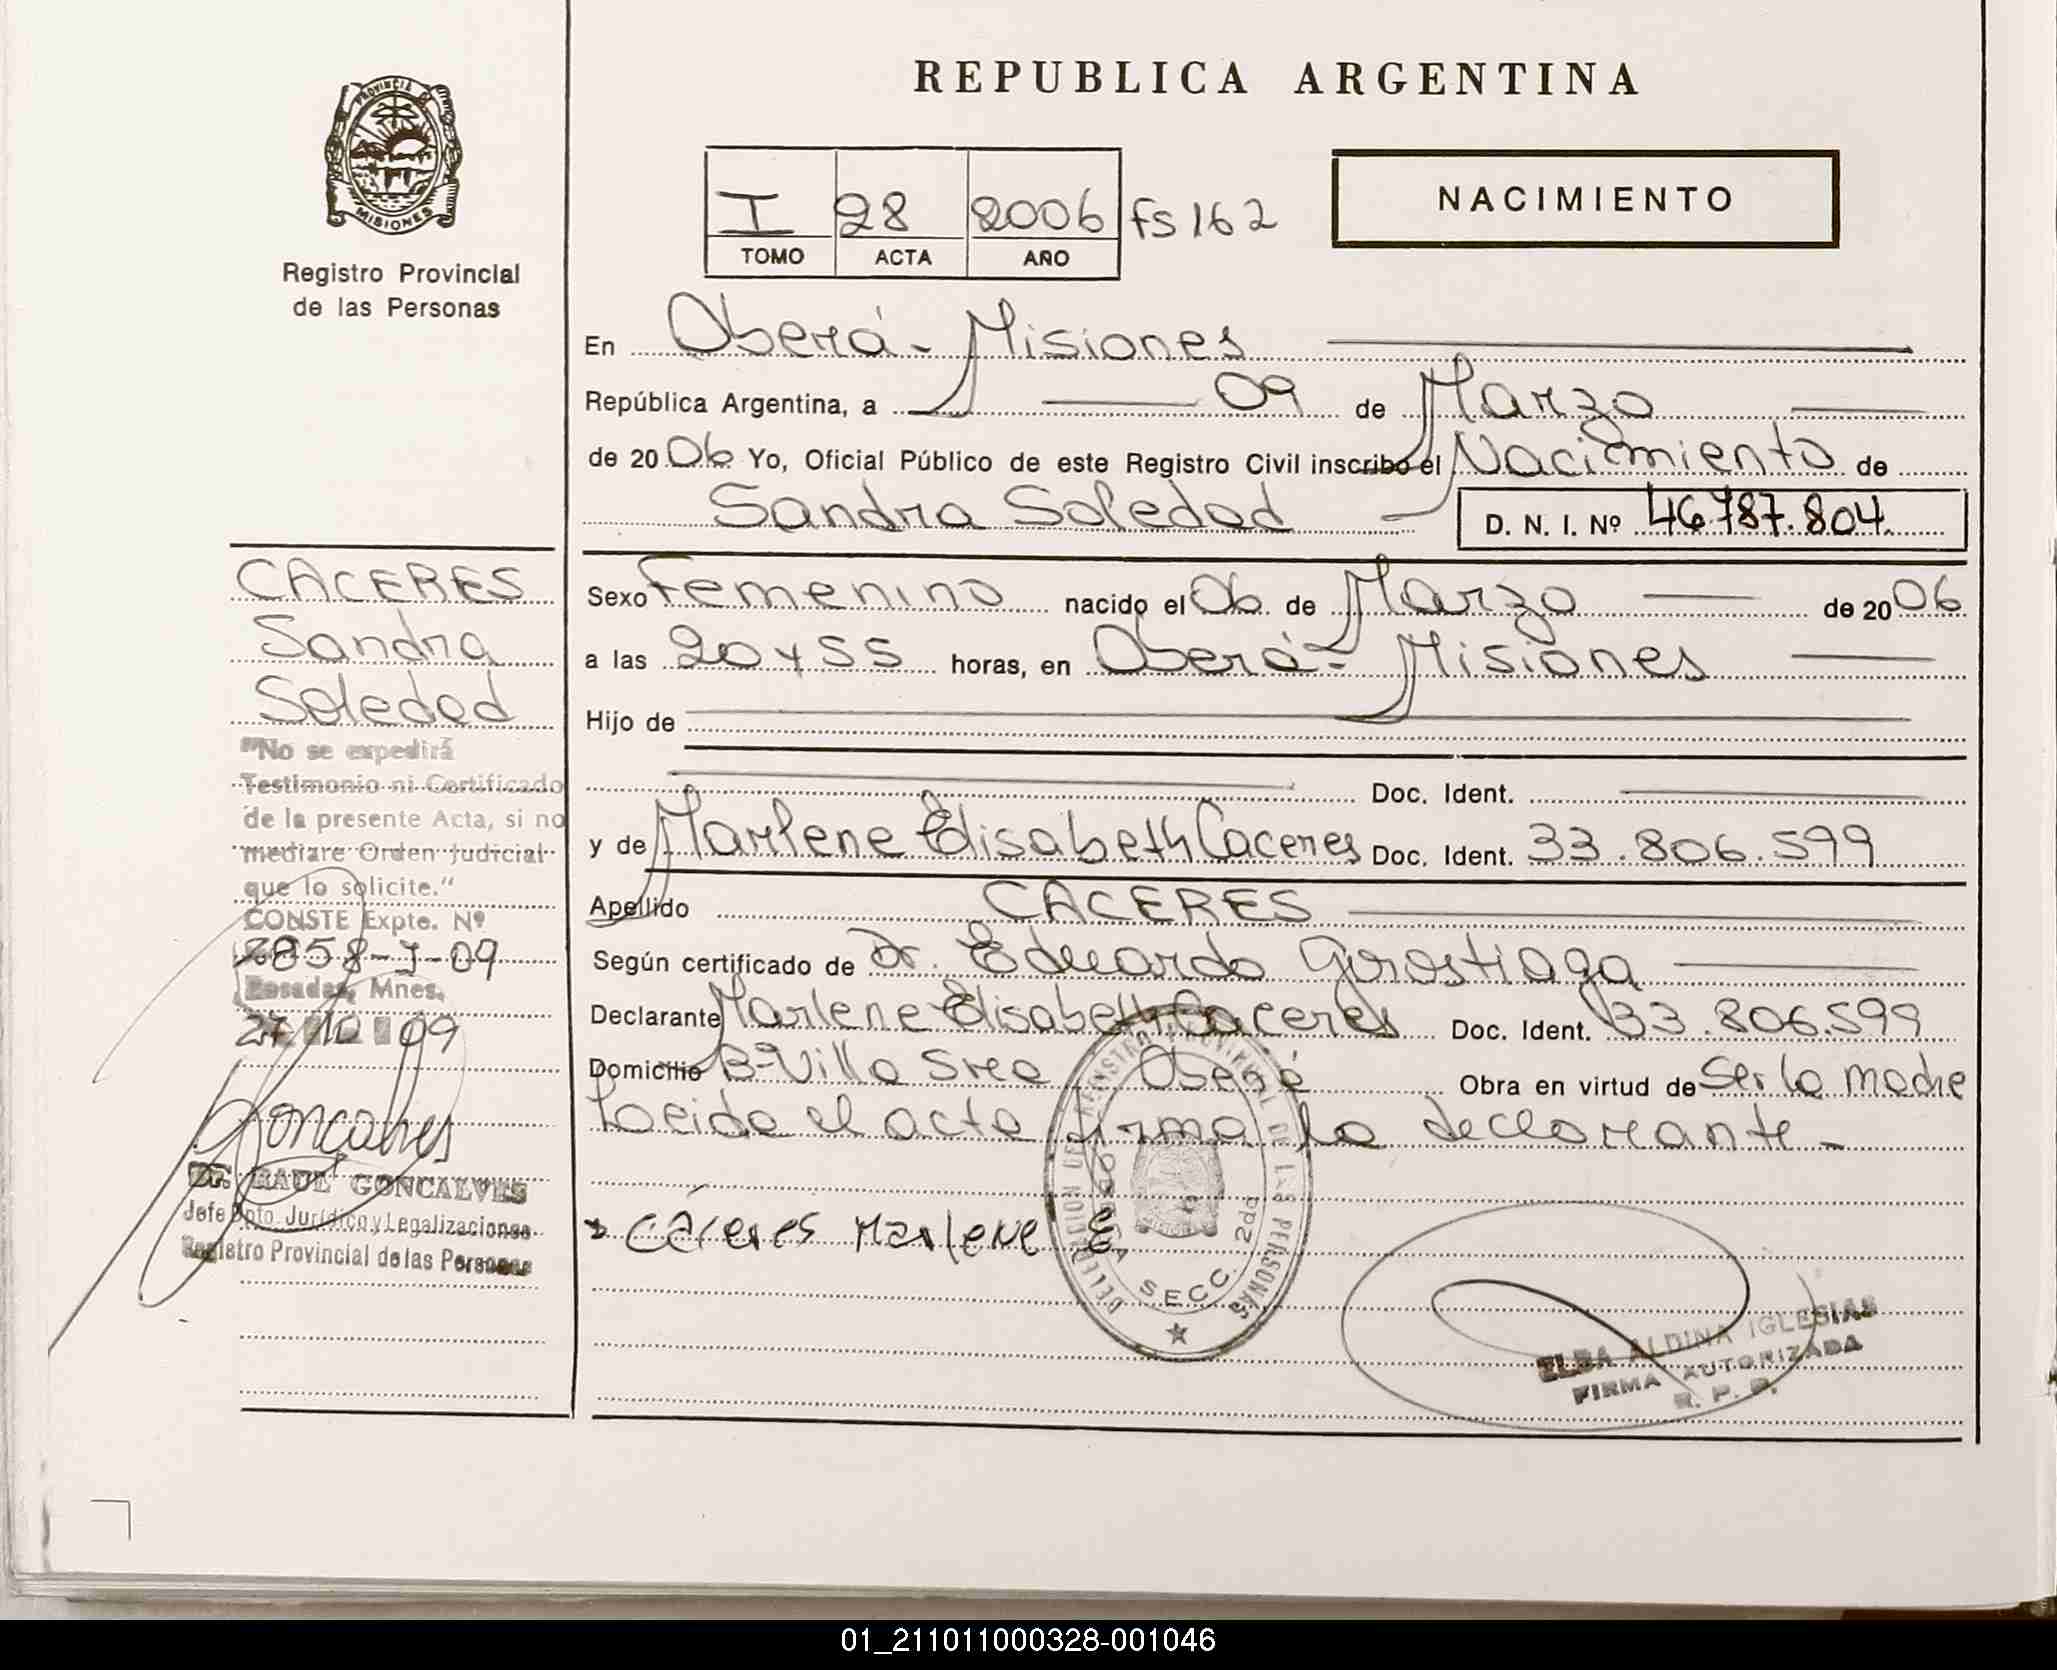 REPUBLICA ARGENTINA
PROVINCIA DE MISIONES
Registro Provincial
de las Personas
I 28 2006 Fs 162
TOMO ACTA AÑO
NACIMIENTO
En Oberá - Misiones
República Argentina, a 09 de Marzo
de 2006 Yo, Oficial Público de este Registro Civil inscribo el Nacimiento de
Sandra Soledad D. N. I. Nº 46.787.804
CACERES
Sandra
Soledad
"No se expedirá
Testimonio ni Certificado
de la presente Acta, si no
mediare Orden Judicial
que lo solicite."
CONSTE Expte. Nº
858-J-09
Posadas, Mnes,
27 10 09
Goncalves
Dr. RAUL GONCALVES
Jefe Dpto. Jurídico y Legalizaciones
Registro Provincial de las Personas
Sexo Femenino nacido el 06 de Marzo de 2006
a las 20 y 55 horas, en Oberá - Misiones
Hijo de
Doc. Ident.
y de Marlene Elisabeth Caceres Doc. Ident. 33.806.599
Apellido CACERES
Según certificado de Dr. Eduardo Gorostiaga
Declarante Marlene Elisabeth Caceres Doc. Ident. 33.806.599
Domicilio Bº Villa Oberá Obra en virtud de Ser la madre
Leida el acta firma la declarante -
Cáceres Marlene E
DELEGACION DEL REGISTRO PROVINCIAL DE LAS PERSONAS
SECC. 2da
ELBA ALDINA IGLESIAS
FIRMA AUTORIZADA
R. P. P.
01_211011000328-001046